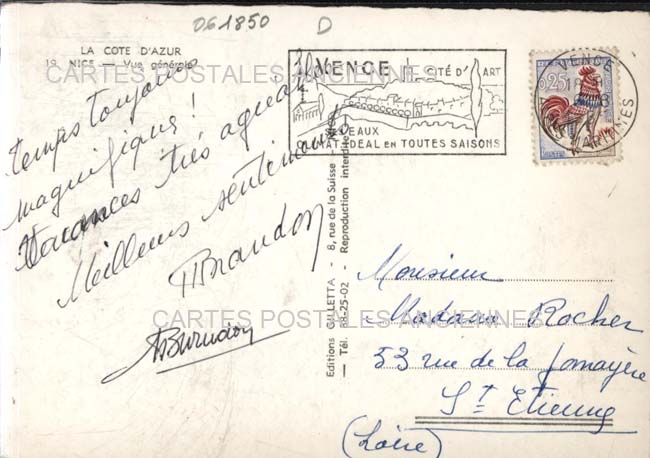 061850 D
LA COTE D'AZUR
19. NICE — Vue générale
CARTES POSTALES ANCIENNES
Temps toujours
magnifique!
Vacances très
Meilleurs sentiments
Brandon
VENCE CITÉ D'ART
SES EAUX
CLIMAT IDEAL EN TOUTES SAISONS
VENCE
0,25
MARITIMES
Editions GILLETTA - 8, rue de la Suisse
— Tél. 88-25-02 - Reproduction interdite
Monsieur
Madame Rocher
CARTES POSTALES ANCIENNES
53 rue de la Jomayère
St Etienne
(Loire)